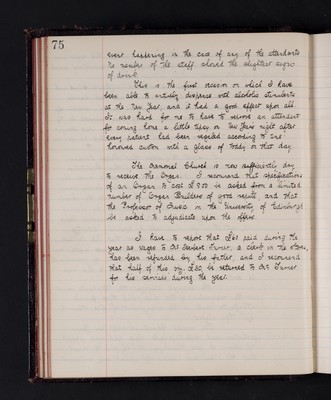 75
ever happening in the case of any of the attendants
No member of the staff showed the slightest signs
of drink.
This is the first occasion on which I have
been able to entirely dispense with alcoholic stimulants
at the New Year, and it had a good effect upon all.
It was hard for me to have to reprove an attendant
for coming home a little tipsy on New Years night after
every patient had been regaled according to time
honoured custom with a glass of toddy on that day.
The Memorial Church is now sufficiently dry
to receive the Organ. I recommend that specifications
of an Organ to cost £850 be asked from a limited
number of Organ Builders of good repute and that
the Professor of Music in the University of Edinburgh
be asked to adjudicate upon the offers.
I have to report that £60 paid during the
year as wages to Mr Herbert Turner, a clerk in the Store,
has been refunded by his father, and I recommend
that half of this viz. £30, be returned to Mr Turner
for his services during the year.